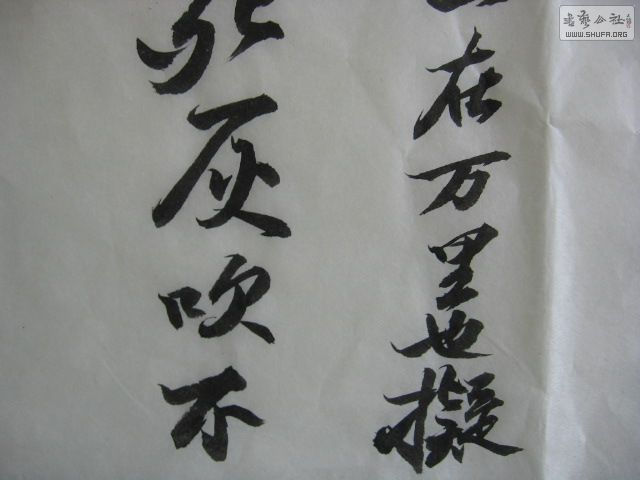 在万里也擬
死灰吹不
书艺公社
WWW.SHUFA.ORG